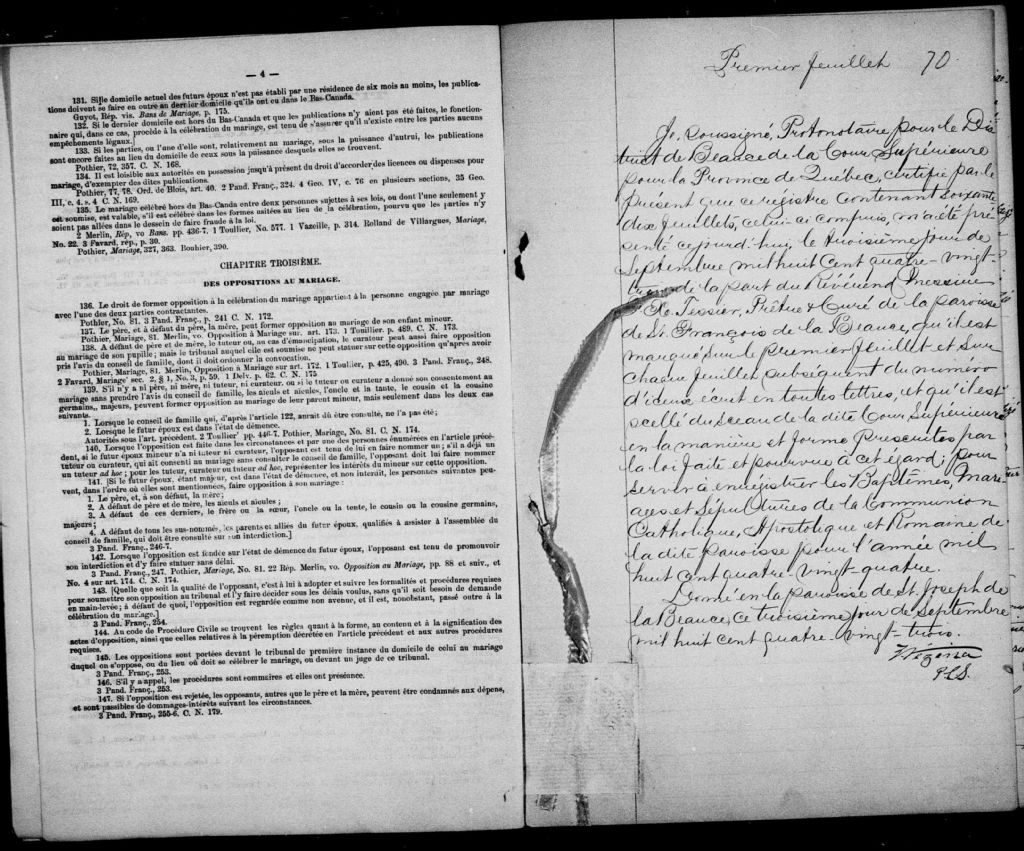 — 4 —
131. Si le domicile actuel des futurs époux n'est pas établi par une résidence de six mois au moins, les publica-
tions doivent se faire en outre au dernier domicile qu'ils ont eu dans le Bas-Canada.
Guyot, Rép. vis. Bans de Mariage, p. 175.
132. Si le dernier domicile est hors du Bas-Canada et que les publications n'y aient pas été faites, le fonction-
naire qui, dans ce cas, procède à la célébration du mariage, est tenu de s'assurer qu'il n'existe entre les parties aucuns
empêchements légaux.]
133. Si les parties, ou l'une d'elles, sont, relativement au mariage, sous la puissance d'autrui, les publications
sont encore faites au lieu du domicile de ceux sous la puissance desquels elles se trouvent.
Pothier, 72, 357. C. N. 168.
134. Il est loisible aux autorités en possession jusqu'à présent du droit d'accorder des licences ou dispenses pour
mariage, d'exempter des dites publications.
Pothier, 77, 78. Ord. de Blois, art. 40. 2 Pand. Franç., 324. 4 Geo. IV, c. 76 en plusieurs sections, 35 Geo.
III, c. 4. s. 4 C. N. 169.
135. Le mariage célébré hors du Bas-Canda entre deux personnes sujettes à ses lois, ou dont l'une seulement y
est soumise, est valable, s'il est célébré dans les formes usitées au lieu de la célébration, pourvu que les parties n'y
soient pas allées dans le dessein de faire fraude à la loi.
2 Merlin, Rép, vo Bans. pp. 436-7. 1 Toullier, No. 577. 1 Vazeille, p. 314. Rolland de Villargues, Mariage,
No. 22. 3 Favard, rép., p. 30.
Pothier, Mariage, 327, 363. Bouhier, 390.
CHAPITRE TROISIÈME.
DES OPPOSITIONS AU MARIAGE.
136. Le droit de former opposition à la célébration du mariage appartient à la personne engagée par mariage
avec l'une des deux parties contractantes.
Pothier, No. 81. 3 Pand. Franç., p. 241 C. N. 172.
137. Le père, et à défaut du père, la mère, peut former opposition au mariage de son enfant mineur.
Pothier, Mariage, 81. Merlin, vo. Opposition à Mariage sur. art. 173. 1 Toullier. p. 489. C. N. 173.
138. A défaut de père et de mère, le tuteur ou, au cas d'émancipation, le curateur peut aussi faire opposition
au mariage de son pupille; mais le tribunal auquel elle est soumise ne peut statuer sur cette opposition qu'après avoir
pris l'avis du conseil de famille, dont il doit ordonner la convocation.
Pothier, Mariage, 81. Merlin, Opposition à Mariage sur art. 172. 1 Toullier, p. 425, 490. 3 Pand. Franç., 248.
2 Favard, Mariage sec. 2, § 1, No. 3, p. 59. 1 Delv. p. 62. C. N. 175
139. S'il n'y a ni père, ni mère, ni tuteur, ni curateur, ou si le tuteur ou curateur a donné son consentement au
mariage sans prendre l'avis du conseil de famille, les aïeuls et aïeules, l'oncle et la tante, le cousin et la cousine
germains, majeurs, peuvent former opposition au mariage de leur parent mineur, mais seulement dans les deux cas
suivants.
1. Lorsque le conseil de famille qui, d'après l'article 122, aurait dû être consulté, ne l'a pas été;
2. Lorsque le futur époux est dans l'état de démence.
Autorités sous l'art. précédent. 2 Toullier pp. 446-7. Pothier, Mariage, No. 81. C. N. 174.
140. Lorsque l'opposition est faite dans les circonstances et par une des personnes énumérées en l'article précé-
dent, si le futur époux mineur n'a ni tuteur ni curateur, l'opposant est tenu de lui en faire nommer un; s'il a déjà un
tuteur ou curateur, qui ait consenti au mariage sans consulter le conseil de famille, l'opposant doit lui faire nommer
un tuteur ad hoc; pour les tuteur, curateur ou tuteur ad hoc, représenter les intérêts du mineur sur cette opposition.
141. [Si le futur époux, étant majeur, est dans l'état de démence, et non interdit, les personnes suivantes peu-
vent, dans l'ordre où elles sont mentionnées, faire opposition à son mariage:
1. Le père, et, à son défaut, la mère;
2. A défaut de père et de mère, les aïeuls et aïeules;
3. A défaut de ces derniers, le frère ou la sœur, l'oncle ou la tante, le cousin ou la cousine germains,
majeurs;
4. A défaut de tous les sus-nommés, les parents et alliés du futur époux, qualifiés à assister à l'assemblée du
conseil de famille, qui doit être consulté sur son interdiction.]
3 Pand. Franç., 246-7.
142. Lorsque l'opposition est fondée sur l'état de démence du futur époux, l'opposant est tenu de promouvoir
son interdiction et d'y faire statuer sans délai.
3 Pand. Franç., 247. Pothier, Mariage, No. 81. 22 Rép. Merlin, vo. Opposition au Mariage, pp. 88 et suiv., et
No. 4 sur art. 174. C. N. 174.
143. [Quelque soit la qualité de l'opposant, c'est à lui à adopter et suivre les formalités et procédures requises
pour soumettre son opposition au tribunal et l'y faire décider sous les délais voulus, sans qu'il soit besoin de demande
en main-levée; à défaut de quoi, l'opposition est regardée comme non avenue, et il est, nonobstant, passé outre à la
célébration du mariage.]
3 Pand. Franç., 254.
144. Au code de Procédure Civile se trouvent les règles quant à la forme, au contenu et à la signification des
actes d'opposition, ainsi que celles relatives à la péremption décrétée en l'article précédent et aux autres procédures
requises.
145. Les oppositions sont portées devant le tribunal de première instance du domicile de celui au mariage
duquel on s'oppose, ou du lieu où doit se célébrer le mariage, ou devant un juge de ce tribunal.
3 Pand. Franç., 253.
146. S'il y a appel, les procédures sont sommaires et elles ont préséance.
3 Pand. Franç., 253.
147. Si l'opposition est rejetée, les opposants, autres que le père et la mère, peuvent être condamnés aux dépens,
et sont passibles de dommages-intérêts suivant les circonstances.
3 Pand. Franç., 255-6. C. N. 179.
Premier feuillet 70
Je, soussigné, Protonotaire pour le Dis
trict de Beauce de la Cour Supérieure
pour la Province de Québec, certifie par le
présent que ce registre contenant soixante
dix feuillets, celui-ci compris, m'a été pré
senté ce jourd'hui, le troisième jour de
Septembre mil huit cent quatre-vingt-
trois de la part du Révérend Messire
F. Xe. Tessier, Prêtre & Curé de la paroisse
de St. François de la Beauce, qu'il est
marqué sur le premier feuillet et sur
chacun feuillet subséquent du numéro
d'iceux écrit en toutes lettres, et qu'il est
scellé du sceau de la dite Cour Supérieure
en la manière et forme Prescrites par
la loi faite et pourvue à cet égard; pour
server à enrégistrer les Baptêmes, Mari-
ages et Sépultures de la Communion
Catholique, Apostolique et Romaine de
la dite paroisse pour l'année mil
huit cent quatre-vingt-quatre.
Donné en la paroisse de St. Joseph de
la Beauce, ce troisième jour de Septembre
mil huit cent quatre-vingt-trois.
Vézina
P.C.S.